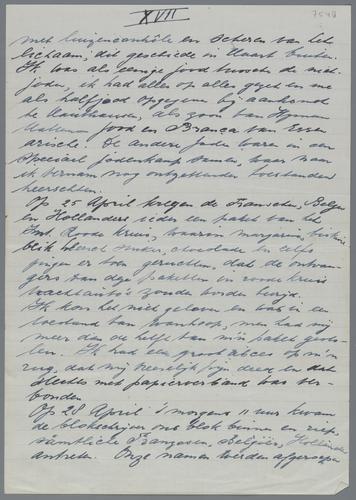 XVII
met luizencontrôle en scheren van het
lichaam, dit geschiede in Maart buiten.
Ik was als eenige jood tusschen de niet-
joden, ik had alles op alles gezet en me
als halfjood opgegeven bij aankomst
te Mauthausen, als zoon van Hyman
jood en Branca van Essen
arische. De andere joden waren in een
speciaal jodenkamp samen, waar naar
ik vernam nog ontzettender toestanden
heerschten.
Op 25 April kregen de Franschen, Belgen
en Hollanders ieder een paket van het
Int. Roode Kruis, waarin margarine,
blik vleesch, suiker, chocolade en zelfs
gingen er toen geruchten, dat de ontvan-
gers van deze paketten in roode kruis
vrachtauto's zouden worden bevrijd.
Ik kon het niet gelooven en was in een
toestand van wanhoop, men had mij
meer dan de helft van m'n paket gesto-
len. Ik had een groot abces op m'n
rug, dat mij vreeselijk pijn deed en dat
slechts met papierverband was ver-
bonden.
Op 28 April 's morgens 11 uur kwam
de blokschrijver ons blok binnen en riep:
sämtliche Franzosen, Belgiër, Holländer
antreten. Onze namen werden afgeroepen